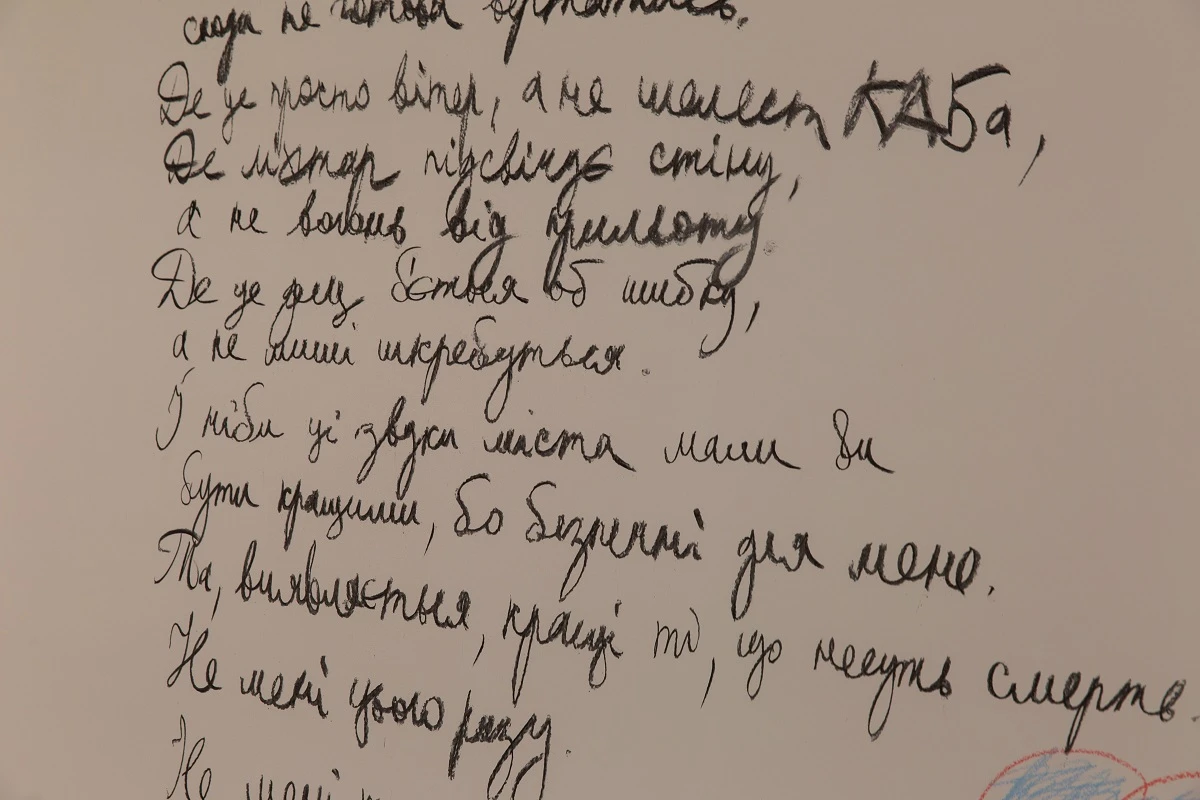 сюди не готова вертатись.
Де це просто вітер, а не шелест КАБа,
Де ліхтар підсвічує стіну,
а не вогонь від прильоту.
Де це дощ б'ється об шибку,
а не миші шкребуться.
І ніби ці звуки міста мали би
бути кращими, бо безпечні для мене.
Та, виявляється, кращі ті, що несуть смерть.
Не мені цього разу.
Не мені